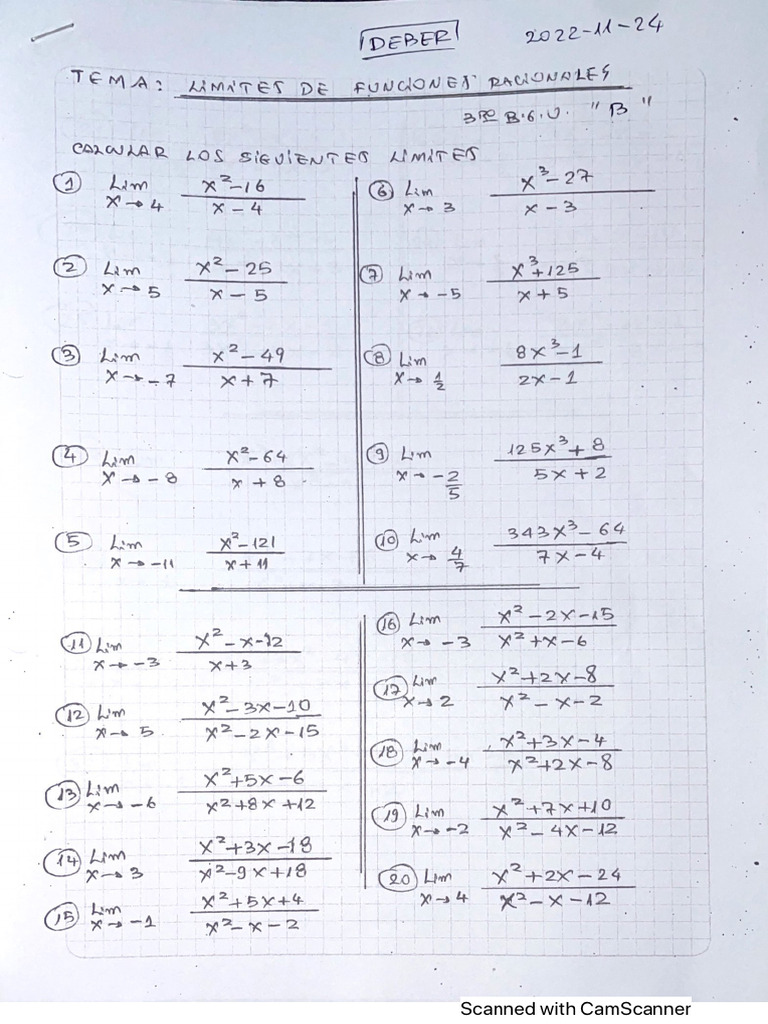 DEBER
2022-11-24
TEMA: LIMITES DE FUNCIONES RACIONALES
3RO B.G.U. "B"
CALCULAR LOS SIGUIENTES LIMITES
① Lim x→4 (x²-16)/(x-4)
② Lim x→5 (x²-25)/(x-5)
③ Lim x→-7 (x²-49)/(x+7)
④ Lim x→-8 (x²-64)/(x+8)
⑤ Lim x→-11 (x²-121)/(x+11)
⑥ Lim x→3 (x³-27)/(x-3)
⑦ Lim x→-5 (x³+125)/(x+5)
⑧ Lim x→1/2 (8x³-1)/(2x-1)
⑨ Lim x→-2/5 (125x³+8)/(5x+2)
⑩ Lim x→4/7 (343x³-64)/(7x-4)
⑪ Lim x→-3 (x²-x-12)/(x+3)
⑫ Lim x→5 (x²-3x-10)/(x²-2x-15)
⑬ Lim x→-6 (x²+5x-6)/(x²+8x+12)
⑭ Lim x→3 (x²+3x-18)/(x²-9x+18)
⑮ Lim x→-1 (x²+5x+4)/(x²-x-2)
⑯ Lim x→-3 (x²-2x-15)/(x²+x-6)
⑰ Lim x→2 (x²+2x-8)/(x²-x-2)
⑱ Lim x→-4 (x²+3x-4)/(x²+2x-8)
⑲ Lim x→-2 (x²+7x+10)/(x²-4x-12)
⑳ Lim x→4 (x²+2x-24)/(x²-x-12)
Scanned with CamScanner